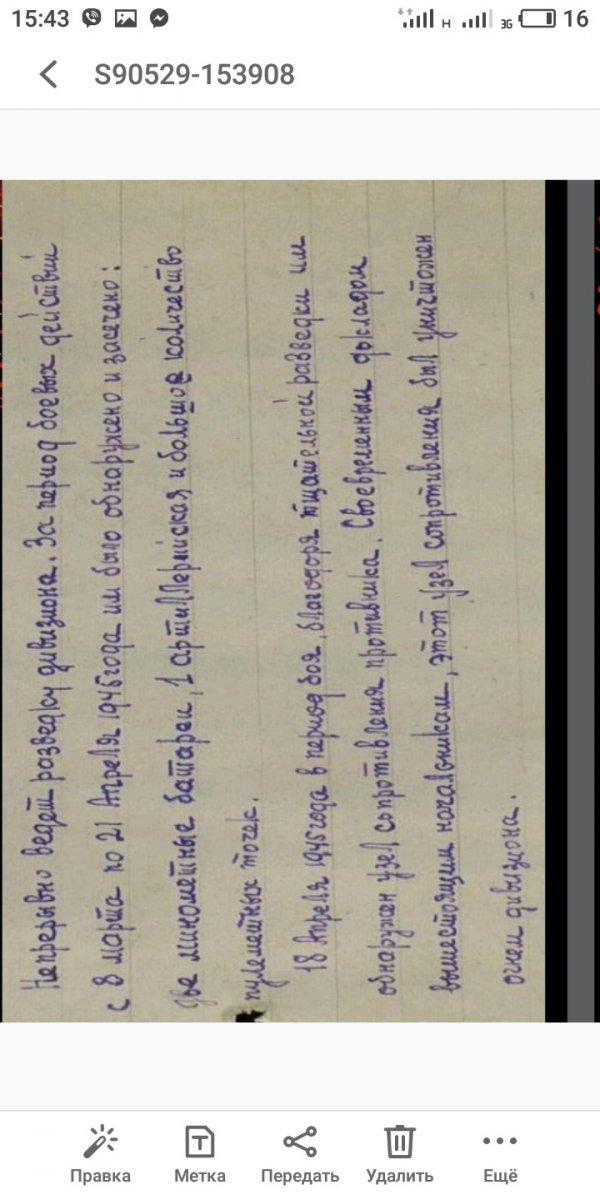 15:43
H
3G
16
S90529-153908
Непрерывно ведет разведку дивизиона. За период боевых действий
с 8 марта по 21 Апреля 1945 года им было обнаружено и засечено:
две минометные батареи, 1 артиллерийская и большое количество
пулеметных точек.
18 Апреля 1945 года в период боя, благодоря тщательной разведки им
обнаружен узел сопротивления противника. Своевременным докладом
вышестоящим начальникам, этот узел сопротивления был уничтожен
огнем дивизиона.
Правка
Метка
Передать
Удалить
Ещё